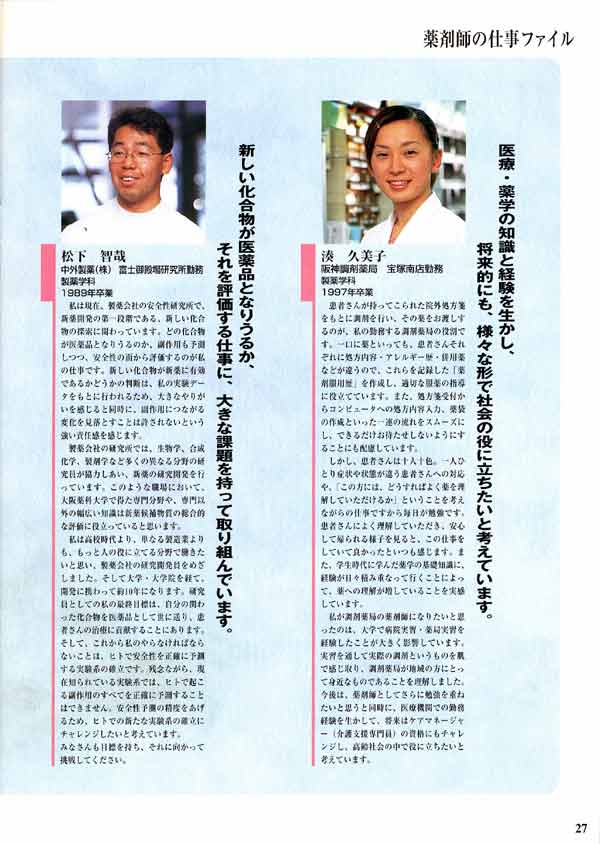 薬剤師の仕事ファイル
新しい化合物が医薬品となりうるか、
それを評価する仕事に、大きな課題を持って取り組んでいます。
松下　智哉
中外製薬（株）　富士御殿場研究所勤務
製薬学科
1989年卒業
　私は現在、製薬会社の安全性研究所で、
新薬開発の第一段階である、新しい化合
物の探索に関わっています。どの化合物
が医薬品となりうるのか、副作用も予測
しつつ、安全性の面から評価するのが私
の仕事です。新しい化合物が新薬に有効
であるかどうかの判断は、私の実験デー
タをもとに行われるため、大きなやりが
いを感じると同時に、副作用につながる
変化を見落とすことは許されないという
強い責任感を感じます。
　製薬会社の研究所では、生物学、合成
化学、製剤学など多くの異なる分野の研
究員が協力しあい、新薬の研究開発を行
っています。このような職場において、
大阪薬科大学で得た専門分野や、専門以
外の幅広い知識は新薬候補物質の総合的
な評価に役立っていると思います。
　私は高校時代より、単なる製造業より
も、もっと人の役に立てる分野で働きた
いと思い、製薬会社の研究開発員をめざ
しました。そして大学・大学院を経て、
開発に携わって約10年になります。研究
員としての私の最終目標は、自分の関わ
った化合物を医薬品として世に送り、患
者さんの治療に貢献することにあります。
そして、これから私のやらなければなら
ないことは、ヒトで安全性を正確に予測
する実験系の確立です。残念ながら、現
在知られている実験系では、ヒトで起こ
る副作用のすべてを正確に予測すること
はできません。安全性予測の精度をあげ
るため、ヒトでの新たな実験系の確立に
チャレンジしたいと考えています。
みなさんも目標を持ち、それに向かって
挑戦してください。
医療・薬学の知識と経験を生かし、
将来的にも、様々な形で社会の役に立ちたいと考えています。
湊　久美子
阪神調剤薬局　宝塚南店勤務
製薬学科
1997年卒業
　患者さんが持ってこられた院外処方箋
をもとに調剤を行い、その薬をお渡しす
るのが、私の勤務する調剤薬局の役割で
す。一口に薬といっても、患者さんそれ
ぞれに処方内容・アレルギー歴・併用薬
などが違うので、これらを記録した「薬
剤服用歴」を作成し、適切な服薬の指導
に役立てています。また、処方箋受付か
らコンピュータへの処方内容入力、薬袋
の作成といった一連の流れをスムーズに
し、できるだけお待たせしないようにす
ることにも配慮しています。
　しかし、患者さんは十人十色。一人ひ
とり症状や状態が違う患者さんへの対応
や、「この方には、どうすればよく薬を理
解していただけるか」ということを考え
ながらの仕事ですから毎日が勉強です。
患者さんによく理解していただき、安心
して帰られる様子を見ると、この仕事を
していて良かったといつも感じます。ま
た、学生時代に学んだ薬学の基礎知識に、
経験が日々積み重なって行くことによっ
て、薬への理解が増していることを実感
しています。
　私が調剤薬局の薬剤師になりたいと思
ったのは、大学で病院実習・薬局実習を
経験したことが大きく影響しています。
実習を通して実際の調剤というものを肌
で感じ取り、調剤薬局が地域の方にとっ
て身近なものであることを理解しました。
今後は、薬剤師としてさらに勉強を重ね
たいと思うと同時に、医療機関での勤務
経験を生かして、将来はケアマネージャ
ー（介護支援専門員）の資格にもチャレ
ンジし、高齢社会の中で役に立ちたいと
考えています。
27